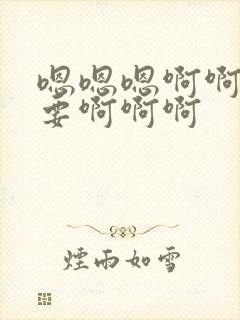 嗯嗯嗯啊啊
要啊啊啊
煙雨如雪